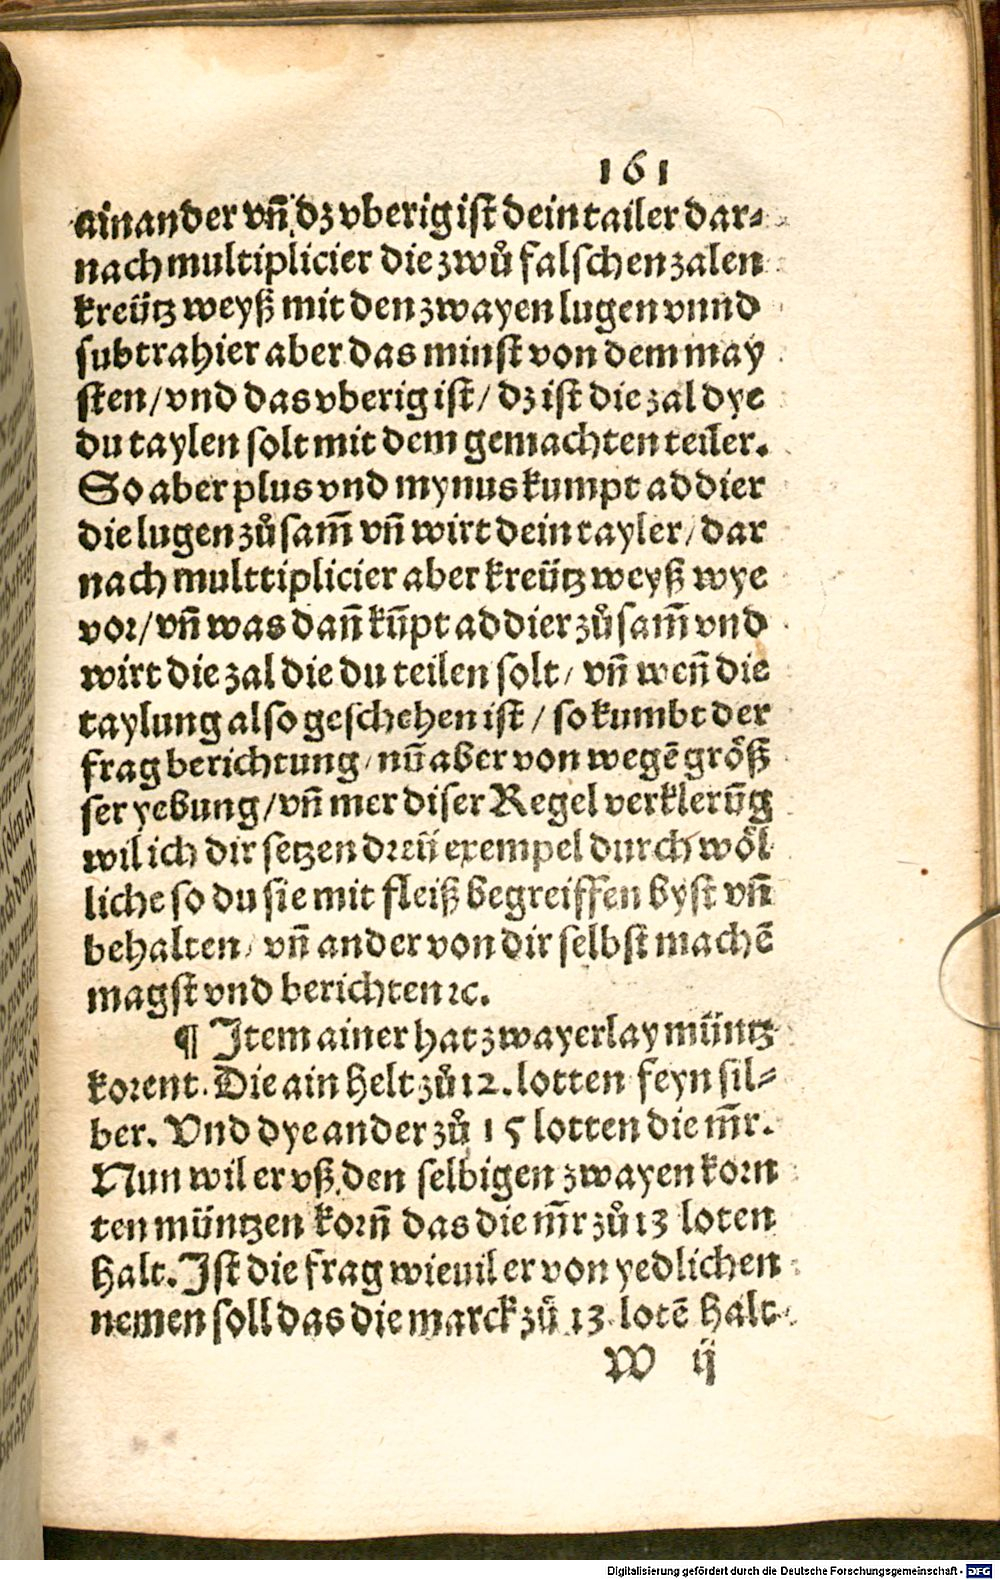 161
ainander vñ dz vberig ist dein tailer dar⸗
nach multiplicier die zwů falschen zalen
kreütz weyß mit den zwayen lugen vnnd
subtrahier aber das minst von dem may
sten/vnd das vberig ist/ dz ist die zal dye
du taylen solt mit dem gemachten teiler.
So aber plus vnd mynus kumpt addier
die lugen zůsam̃ vñ wirt dein tayler/dar
nach multtiplicier aber kreütz weyß wye
vor/vñ was dañ kũpt addier zů sam̃ vnd
wirt die zal die du teilen solt/ vñ weñ die
taylung also geschehen ist/ so kumbt der
frag berichtung/nũ aber von wegẽ größ
ser yebung/vñ mer diser Regel verklerũg
wil ich dir setzen dreü exempel durch wöl
liche so du sie mit fleiß begreiffen byst vñ
behalten/ vñ ander von dir selbst machẽ
magst vnd berichten ⁊c.
¶ Item ainer hat zwayerlay müntz
korent. Die ain helt zů 12. lotten feyn sil⸗
ber. Vnd dye ander zů 15 lotten die m̃r.
Nun wil er vß den selbigen zwayen korn
ten müntzen korñ das die m̃r zů 13 loten
halt. Ist die frag wieuil er von yedlichen
nemen soll das die marck zů 13. lotẽ halt.
W ij
Digitalisierung gefördert durch die Deutsche Forschungsgemeinschaft - DFG